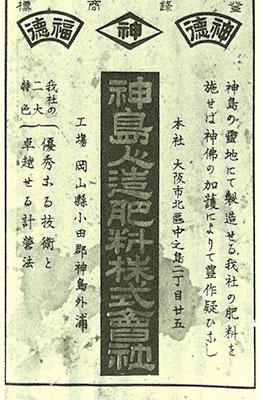 登録商標
神德
神
福德
神島の靈地にて製造せる我社の肥料を
施せば神佛の加護によりて豊作疑ひなし
本社 大阪市北區中之島二丁目廿五
神島人造肥料株式會社
工場 岡山縣小田郡神島外浦
我社の二大特色
優秀なる技術と
卓越せる計營法